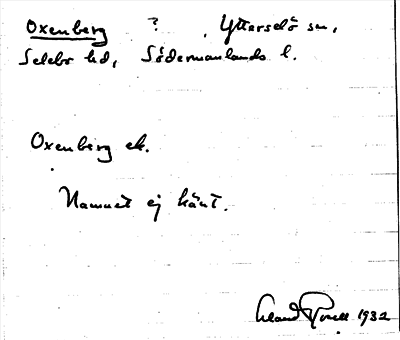 Oxenberg ? , Ytterselö sn,
Selebo hd, Södermanlands l.
Oxenberg ek.
Namnet ej känt.
1932